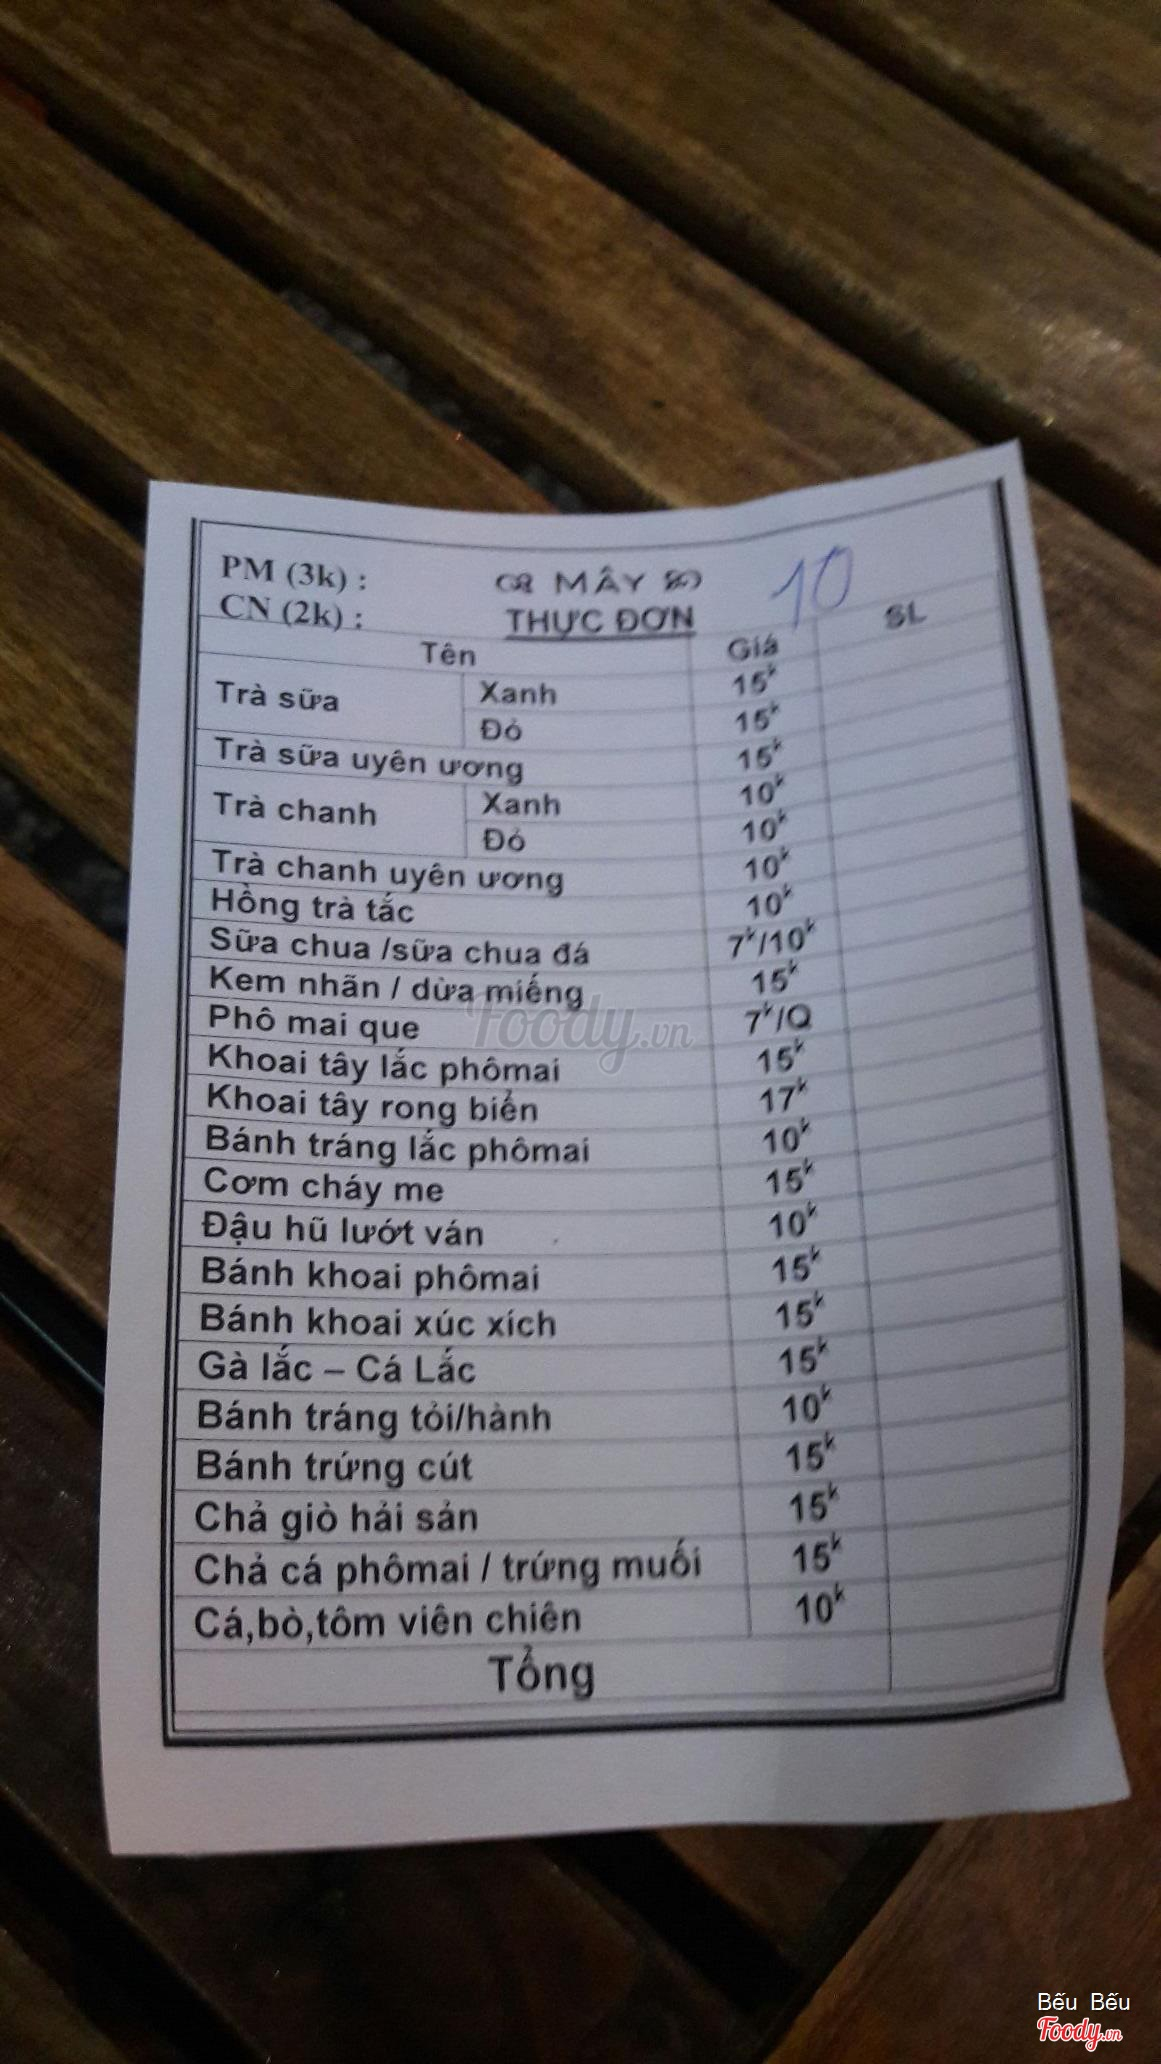 PM (3k) :
CN (2k) :
MÂY
THỰC ĐƠN
10
Tên Giá SL
Trà sữa Xanh 15k
Đỏ 15k
Trà sữa uyên ương 15k
Trà chanh Xanh 10k
Đỏ 10k
Trà chanh uyên ương 10k
Hồng trà tắc 10k
Sữa chua /sữa chua đá 7k/10k
Kem nhãn / dừa miếng 15k
Phô mai que 7k/Q
Khoai tây lắc phômai 15k
Khoai tây rong biển 17k
Bánh tráng lắc phômai 10k
Cơm cháy me 15k
Đậu hũ lướt ván 10k
Bánh khoai phômai 15k
Bánh khoai xúc xích 15k
Gà lắc – Cá Lắc 15k
Bánh tráng tỏi/hành 10k
Bánh trứng cút 15k
Chả giò hải sản 15k
Chả cá phômai / trứng muối 15k
Cá,bò,tôm viên chiên 10k
Tổng
Foody.vn
Bếu Bếu
Foody.vn